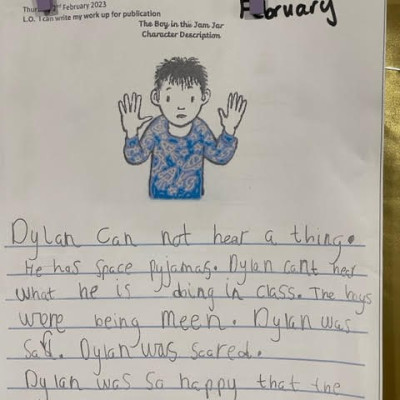 February 2023
February
L.O. I can write my work up for publication
The Boy in the Jam Jar
Character Description
Dylan can not hear a thing.
He has space pyjamas. Dylan cant hear
what he is doing in class. The boys
were being meen. Dylan was
sad. Dylan was scared.
Dylan was so happy that the